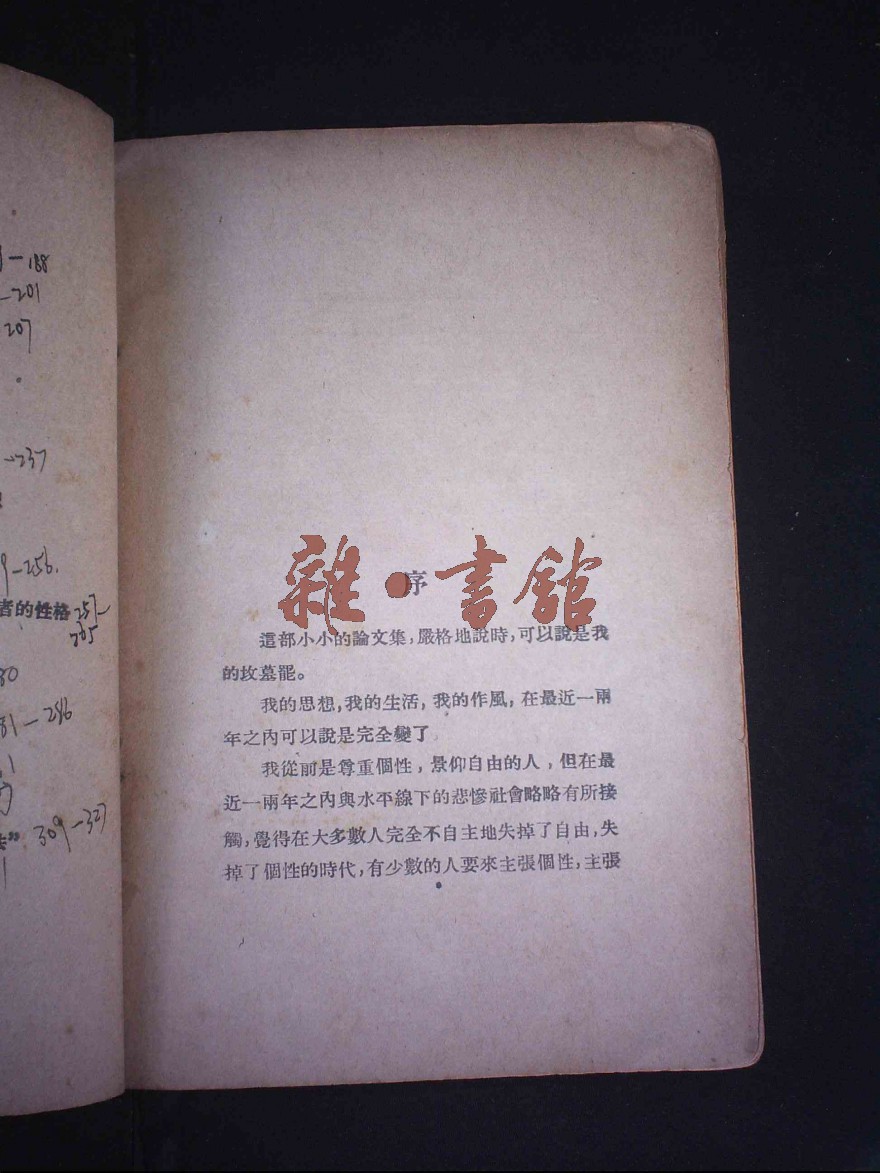 188
201
207
237
256
者的性格 257—
305
80
81—286
309—327
雜·書館
序
這部小小的論文集，嚴格地說時，可以說是我
的坟墓罷。
我的思想，我的生活，我的作風，在最近一兩
年之內可以說是完全變了
我從前是尊重個性，景仰自由的人，但在最
近一兩年之內與水平線下的悲慘社會略略有所接
觸，覺得在大多數人完全不自主地失掉了自由，失
掉了個性的時代，有少數的人要來主張個性，主張